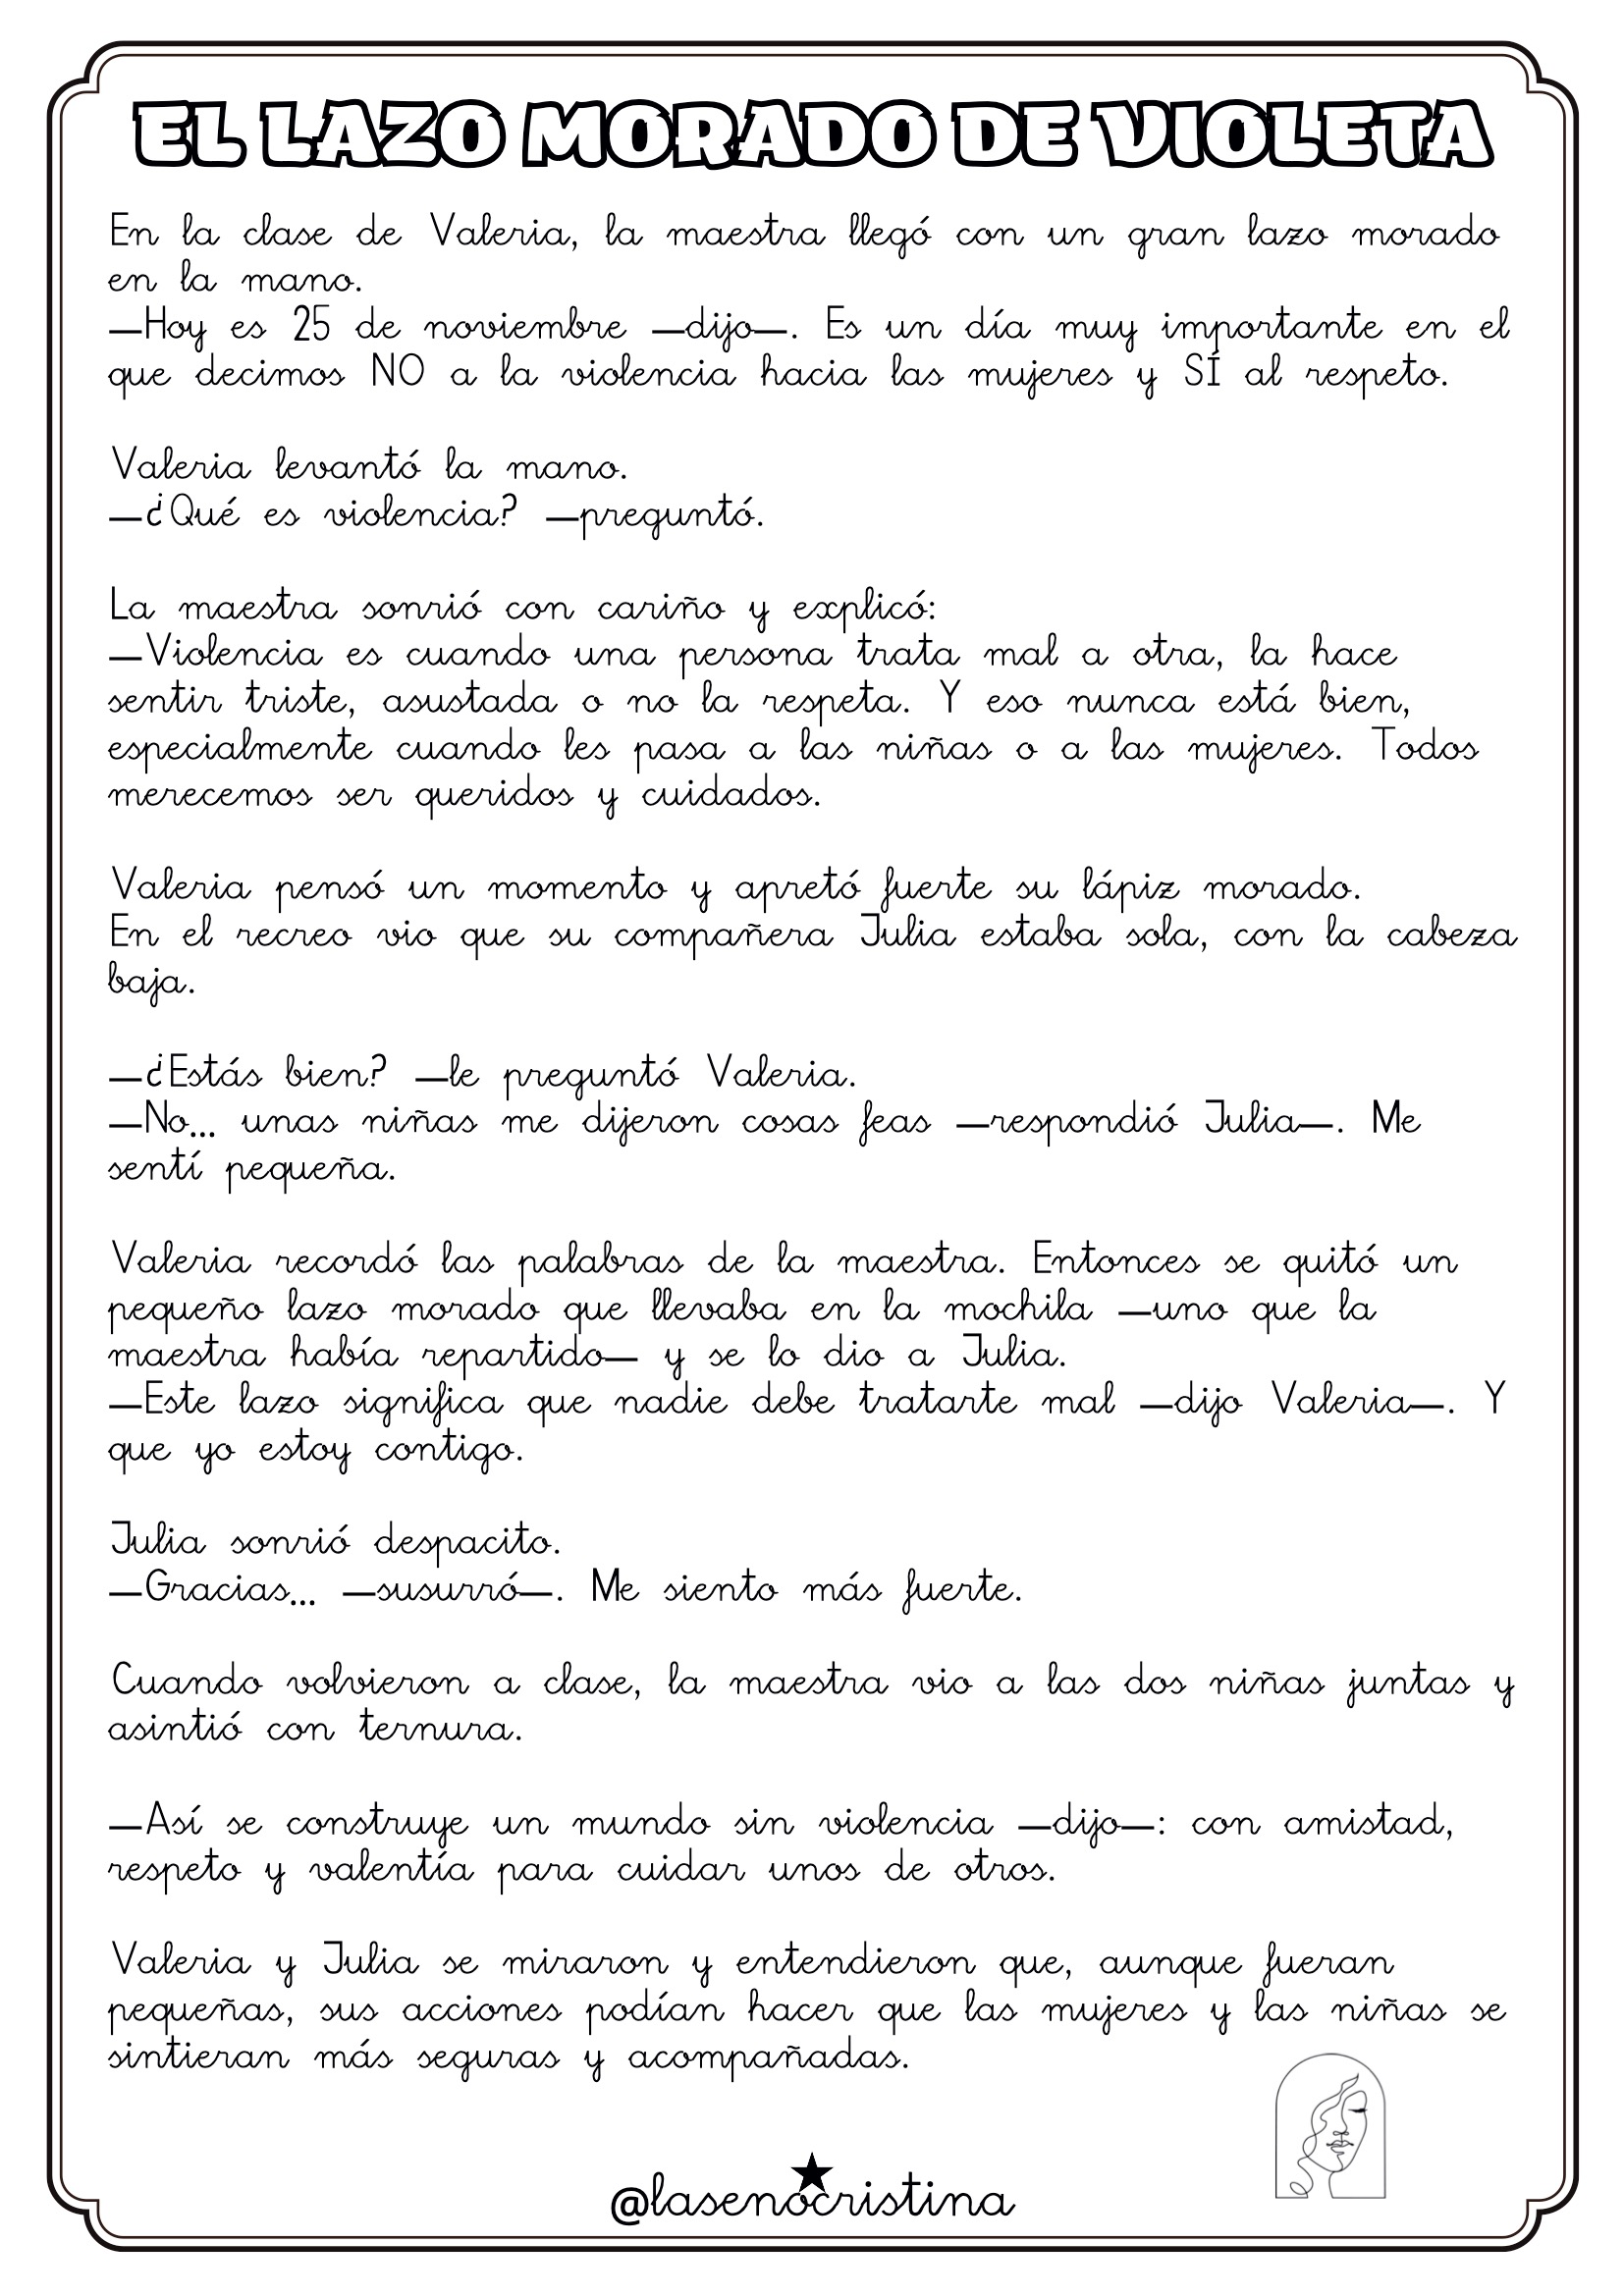 EL LAZO MORADO DE VIOLETA
En la clase de Valeria, la maestra llegó con un gran lazo morado
en la mano.
—Hoy es 25 de noviembre —dijo—. Es un día muy importante en el
que decimos NO a la violencia hacia las mujeres y SÍ al respeto.
Valeria levantó la mano.
—¿Qué es violencia? —preguntó.
La maestra sonrió con cariño y explicó:
—Violencia es cuando una persona trata mal a otra, la hace
sentir triste, asustada o no la respeta. Y eso nunca está bien,
especialmente cuando les pasa a las niñas o a las mujeres. Todos
merecemos ser queridos y cuidados.
Valeria pensó un momento y apretó fuerte su lápiz morado.
En el recreo vio que su compañera Julia estaba sola, con la cabeza
baja.
—¿Estás bien? —le preguntó Valeria.
—No... unas niñas me dijeron cosas feas —respondió Julia—. Me
sentí pequeña.
Valeria recordó las palabras de la maestra. Entonces se quitó un
pequeño lazo morado que llevaba en la mochila —uno que la
maestra había repartido— y se lo dio a Julia.
—Este lazo significa que nadie debe tratarte mal —dijo Valeria—. Y
que yo estoy contigo.
Julia sonrió despacito.
—Gracias... —susurró—. Me siento más fuerte.
Cuando volvieron a clase, la maestra vio a las dos niñas juntas y
asintió con ternura.
—Así se construye un mundo sin violencia —dijo—: con amistad,
respeto y valentía para cuidar unos de otros.
Valeria y Julia se miraron y entendieron que, aunque fueran
pequeñas, sus acciones podían hacer que las mujeres y las niñas se
sintieran más seguras y acompañadas.
@lasenocristina